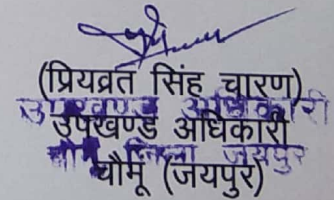 (प्रियव्रत सिंह चारण)
उपखण्ड अधिकारी
उपखण्ड अधिकारी
चौमूं (जयपुर)
जिला जयपुर